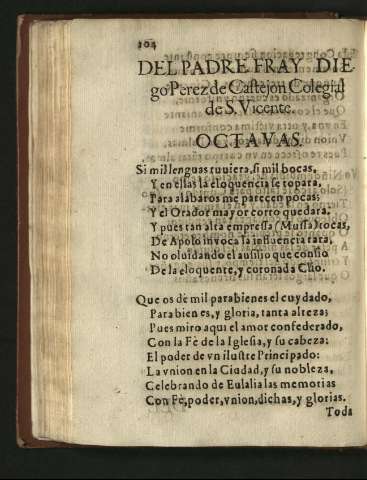 104
DEL PADRE FRAY DIE
go Perez de Castejon Colegial
de S. Vicente.
OCTAVAS.
Si mil lenguas tuuiera, si mil bocas,
Y en ellas la eloquencia se topara,
Para alabaros me parecen pocas;
Y el Orador mayor corto quedara.
Y pues tan alta empressa (Mussa) tocas,
De Apolo inuoca la influencia rara,
No oluidando el ausilio que confio
De la eloquente, y coronada Clio.
Que os dè mil parabienes el cuydado,
Para bien es, y gloria, tanta alteza;
Pues miro aqui el amor confederado,
Con la Fè de la Iglesia, y su cabeza:
El poder de vn ilustre Principado:
La vnion en la Ciudad, y su nobleza,
Celebrando de Eulalia las memorias
Con Fè, poder, vnion, dichas, y glorias.
Toda